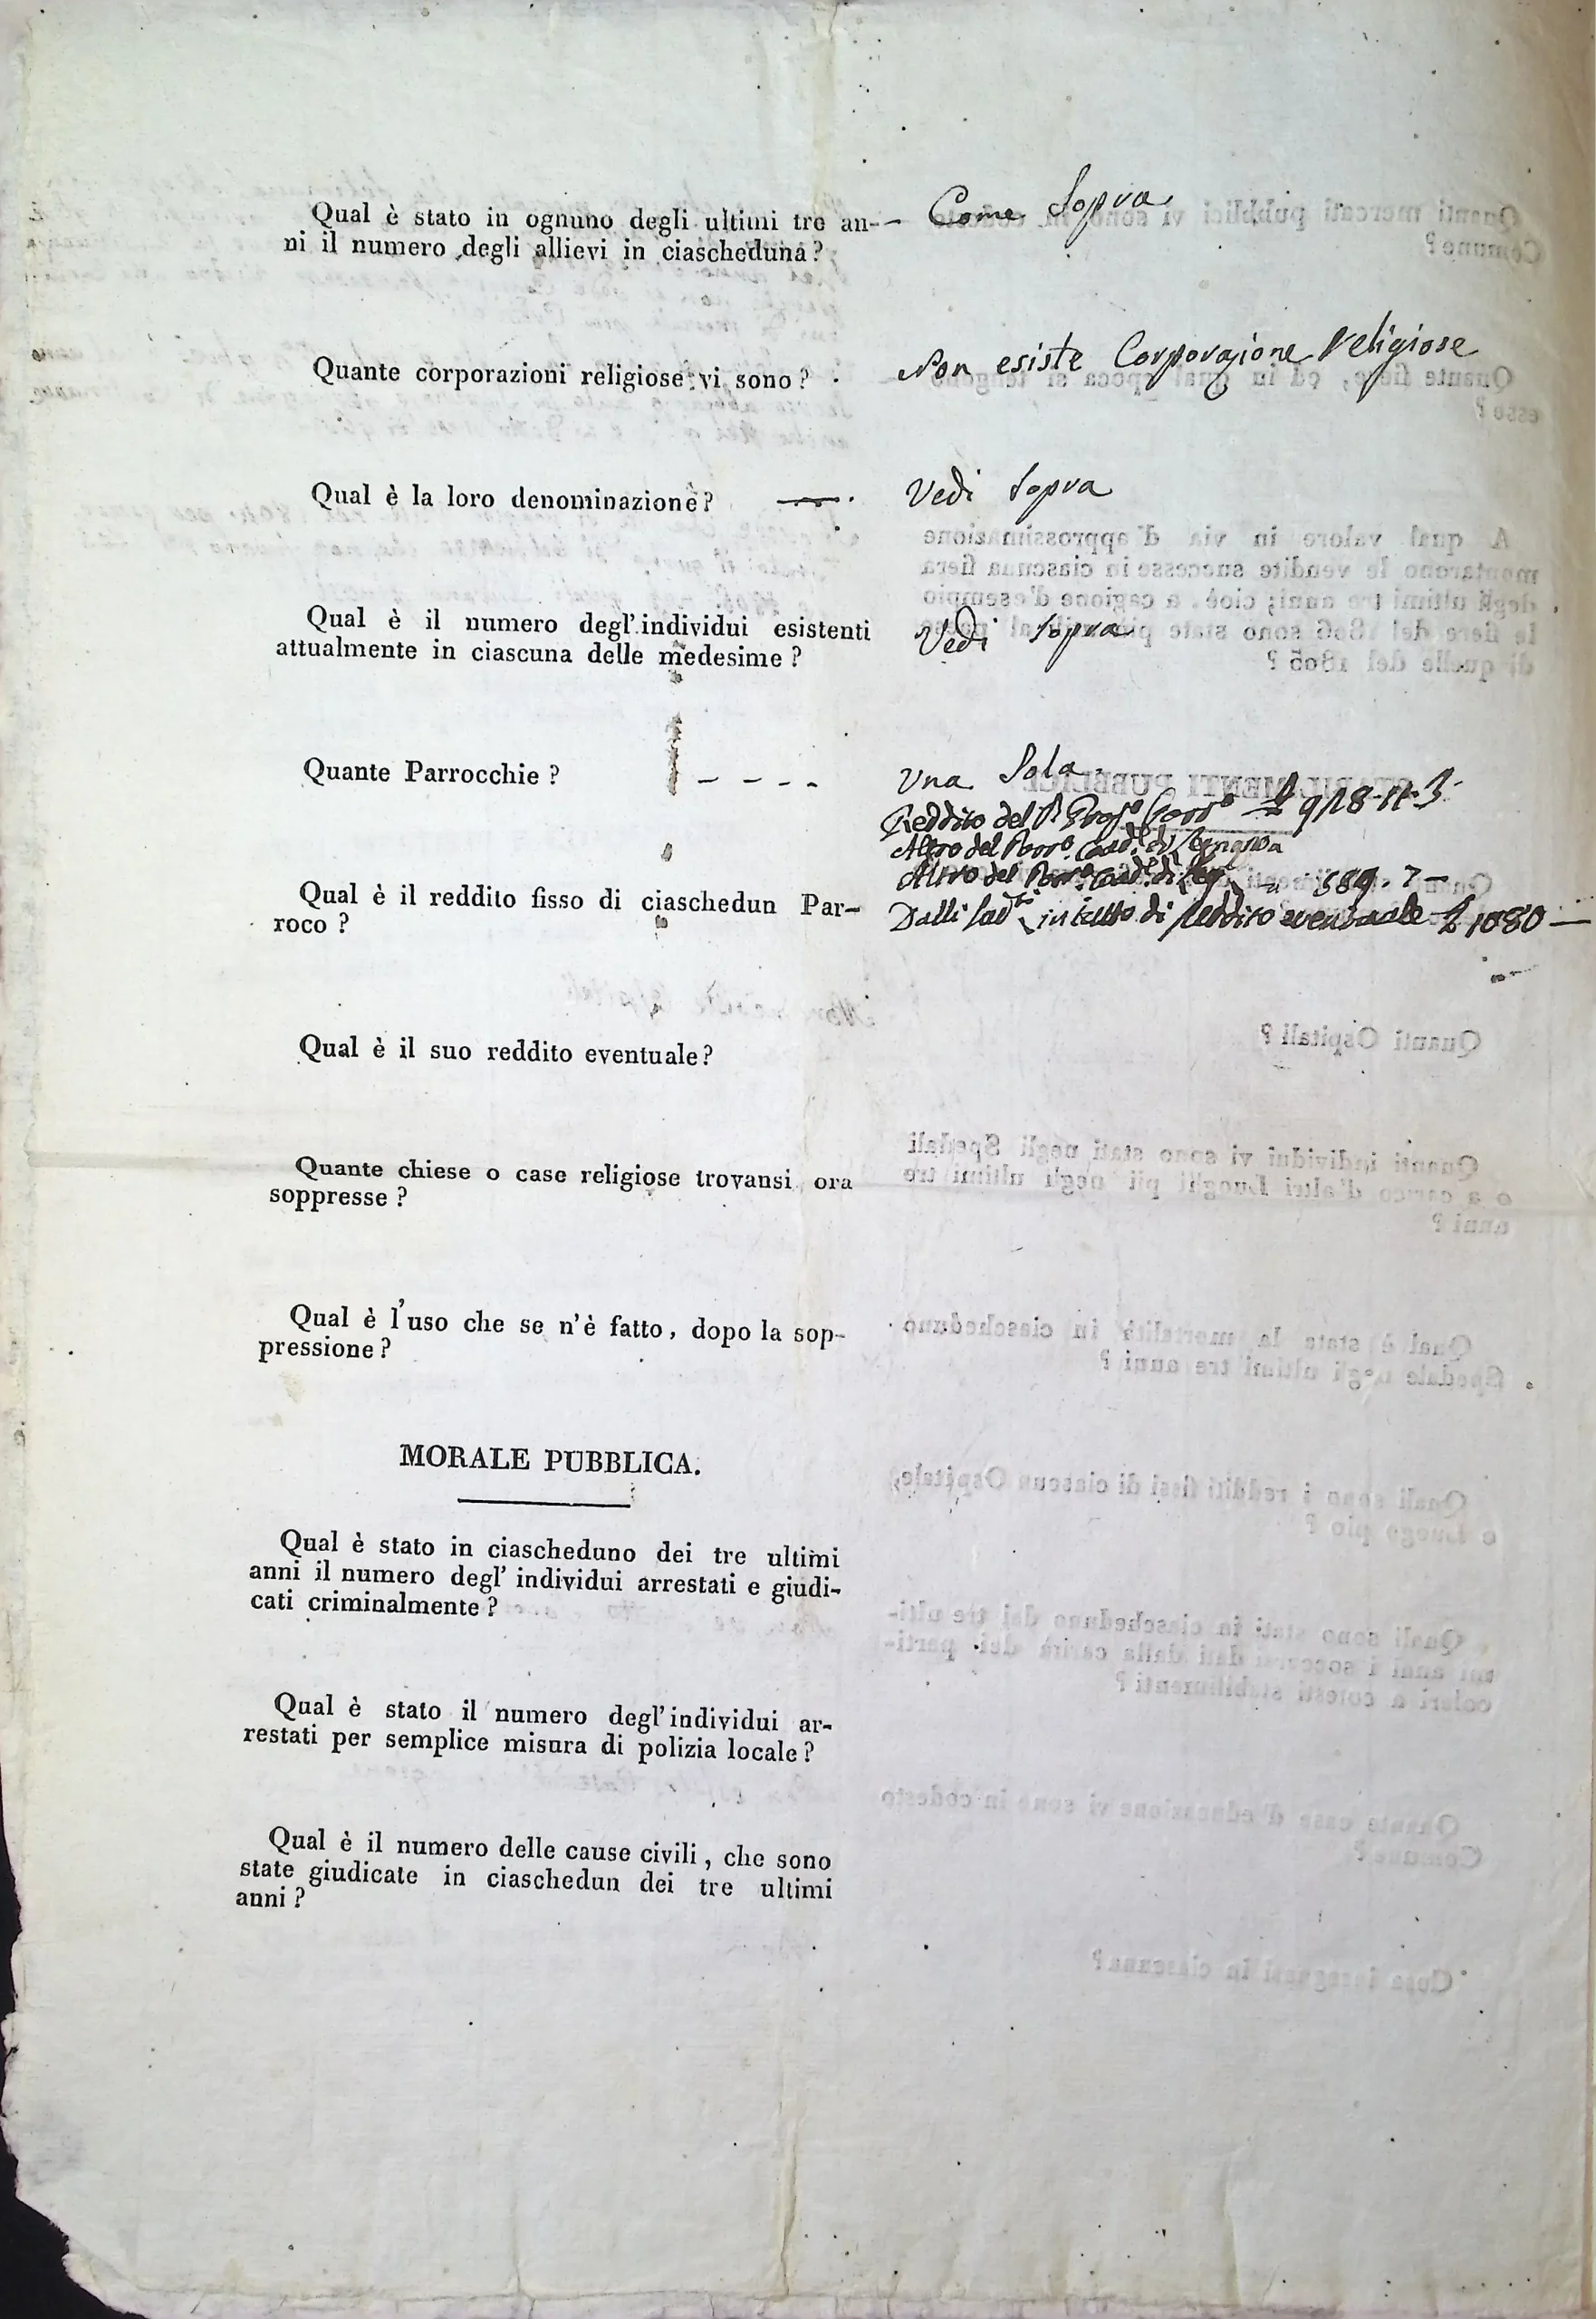 Qual è stato in ognuno degli ultimi tre an-
ni il numero degli allievi in ciascheduna?
Come Sopra
Quante corporazioni religiose vi sono?
Non esiste Corporazione Religiose
Qual è la loro denominazione?
Vedi Sopra
Qual è il numero degl'individui esistenti
attualmente in ciascuna delle medesime?
Vedi Sopra
Quante Parrocchie?
Una Sola
Reddito del 918-11-3
Altro del
Qual è il reddito fisso di ciaschedun Par-
roco?
Altro del 589.7-
Dalli in tutto di reddito eventuale 1080 —
Qual è il suo reddito eventuale?
Quante chiese o case religiose trovansi ora
soppresse?
Qual è l'uso che se n'è fatto, dopo la sop-
pressione?
MORALE PUBBLICA.
Qual è stato in ciascheduno dei tre ultimi
anni il numero degl' individui arrestati e giudi-
cati criminalmente?
Qual è stato il numero degl'individui ar-
restati per semplice misura di polizia locale?
Qual è il numero delle cause civili, che sono
state giudicate in ciaschedun dei tre ultimi
anni?